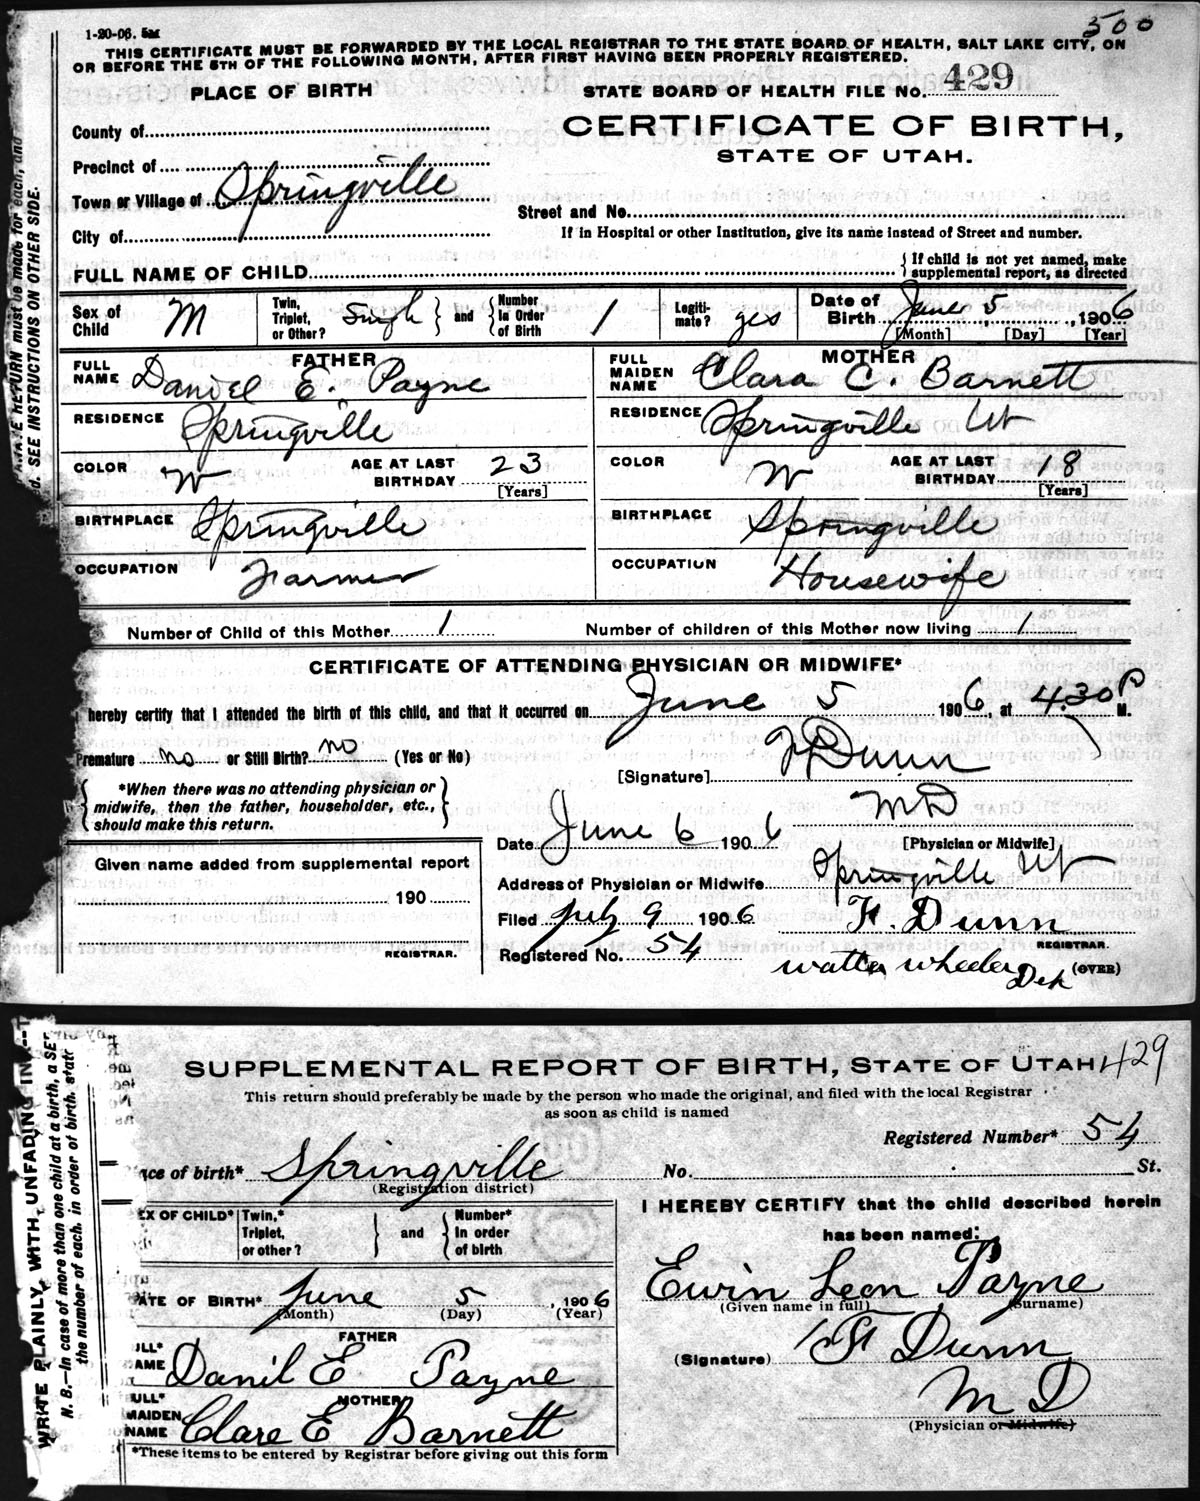 1-20-06. 5M
500
THIS CERTIFICATE MUST BE FORWARDED BY THE LOCAL REGISTRAR TO THE STATE BOARD OF HEALTH, SALT LAKE CITY, ON
OR BEFORE THE 5TH OF THE FOLLOWING MONTH, AFTER FIRST HAVING BEEN PROPERLY REGISTERED.
PLACE OF BIRTH
STATE BOARD OF HEALTH FILE NO. 429
County of
CERTIFICATE OF BIRTH,
Precinct of
STATE OF UTAH.
Town or Village of Springville
Street and No.
City of
If in Hospital or other Institution, give its name instead of Street and number.
FULL NAME OF CHILD
{ If child is not yet named, make supplemental report, as directed
Sex of Child M
Twin, Triplet, or Other? Singh } and { Number In Order of Birth 1
Legitimate? yes
Date of Birth June 5, 1906
[Month] [Day] [Year]
FATHER
FULL NAME Daniel E. Payne
MOTHER
FULL MAIDEN NAME Clara C. Barnett
RESIDENCE Springville
RESIDENCE Springville Ut
COLOR W AGE AT LAST BIRTHDAY 23 [Years]
COLOR W AGE AT LAST BIRTHDAY 18 [Years]
BIRTHPLACE Springville
BIRTHPLACE Springville
OCCUPATION Farmer
OCCUPATION Housewife
Number of Child of this Mother 1
Number of children of this Mother now living 1
CERTIFICATE OF ATTENDING PHYSICIAN OR MIDWIFE*
hereby certify that I attended the birth of this child, and that it occurred on June 5 1906, at 4.30 P M.
Premature no or Still Birth? no (Yes or No)
[Signature] Dunn
MD
{ *When there was no attending physician or
midwife, then the father, householder, etc.,
should make this return. }
Date June 6 1906
[Physician or Midwife]
Given name added from supplemental report
Address of Physician or Midwife Springville Ut
190
Filed July 9 1906 F. Dunn
REGISTRAR.
REGISTRAR.
Registered No. 54
Walter Wheeler Dep
(OVER)
ANATE RETURN must be made for each, and
d. SEE INSTRUCTIONS ON OTHER SIDE.
SUPPLEMENTAL REPORT OF BIRTH, STATE OF UTAH
429
This return should preferably be made by the person who made the original, and filed with the local Registrar
as soon as child is named
Registered Number* 54
ace of birth* Springville No. St.
(Registration district)
EX OF CHILD* Twin,* Triplet, or other? } and { Number* In order of birth
I HEREBY CERTIFY that the child described herein
has been named:
Ewin Leon Payne
(Given name in full) (Surname)
ATE OF BIRTH* June 5, 1906
(Month) (Day) (Year)
FATHER
ULL* AME Danil E Payne
(Signature) Dunn
MD
(Physician or Midwife)
MOTHER
ULL* MAIDEN NAME Clare E Barnett
*These items to be entered by Registrar before giving out this form
WRITE PLAINLY, WITH UNFADING INK
N. B.—In case of more than one child at a birth, a SE
the number of each, in order of birth, stat